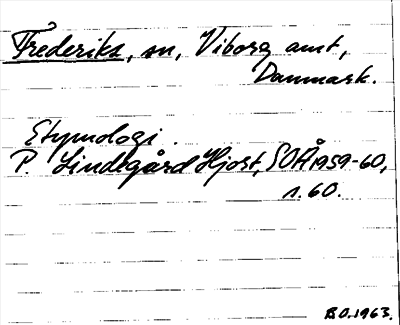 Frederiks, sn, Viborg amt,
Danmark.
Etymologi.
P. Lindegård Hjort, SOÅ 1959-60,
s. 60.
B.O. 1963.